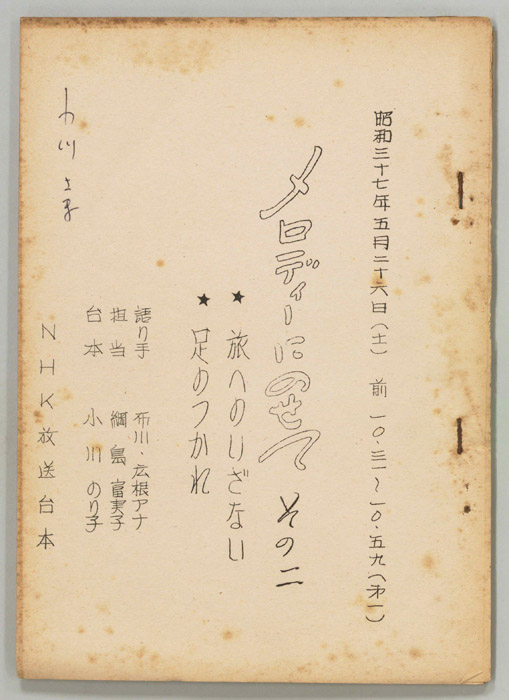 昭和三十七年五月二十六日(土) 前 一〇・三一〜一〇・五九(第一)
メロディーにのせて その二
★ 旅へのいざない
★ 足のつかれ
語り手 布川・広根アナ
担当 綱島富実子
台本 小川のり子
NHK放送台本